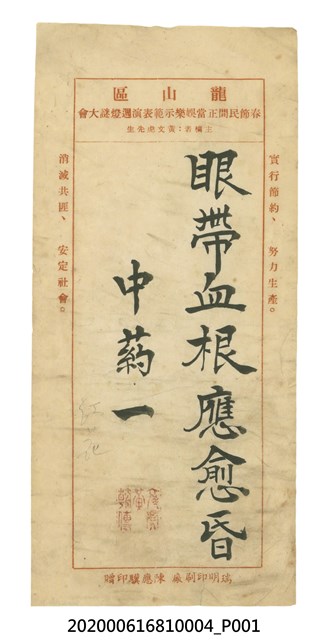 龍山區
春節民間正當娛樂示範表演迎燈謎大會
主備者：黃文虎先生
實行節約、 努力生產。
眼帶血根應愈昏
中葯一
消滅共匪、 安定社會。
瑞明印刷廠 陳應麒印贈
202000616810004_P001